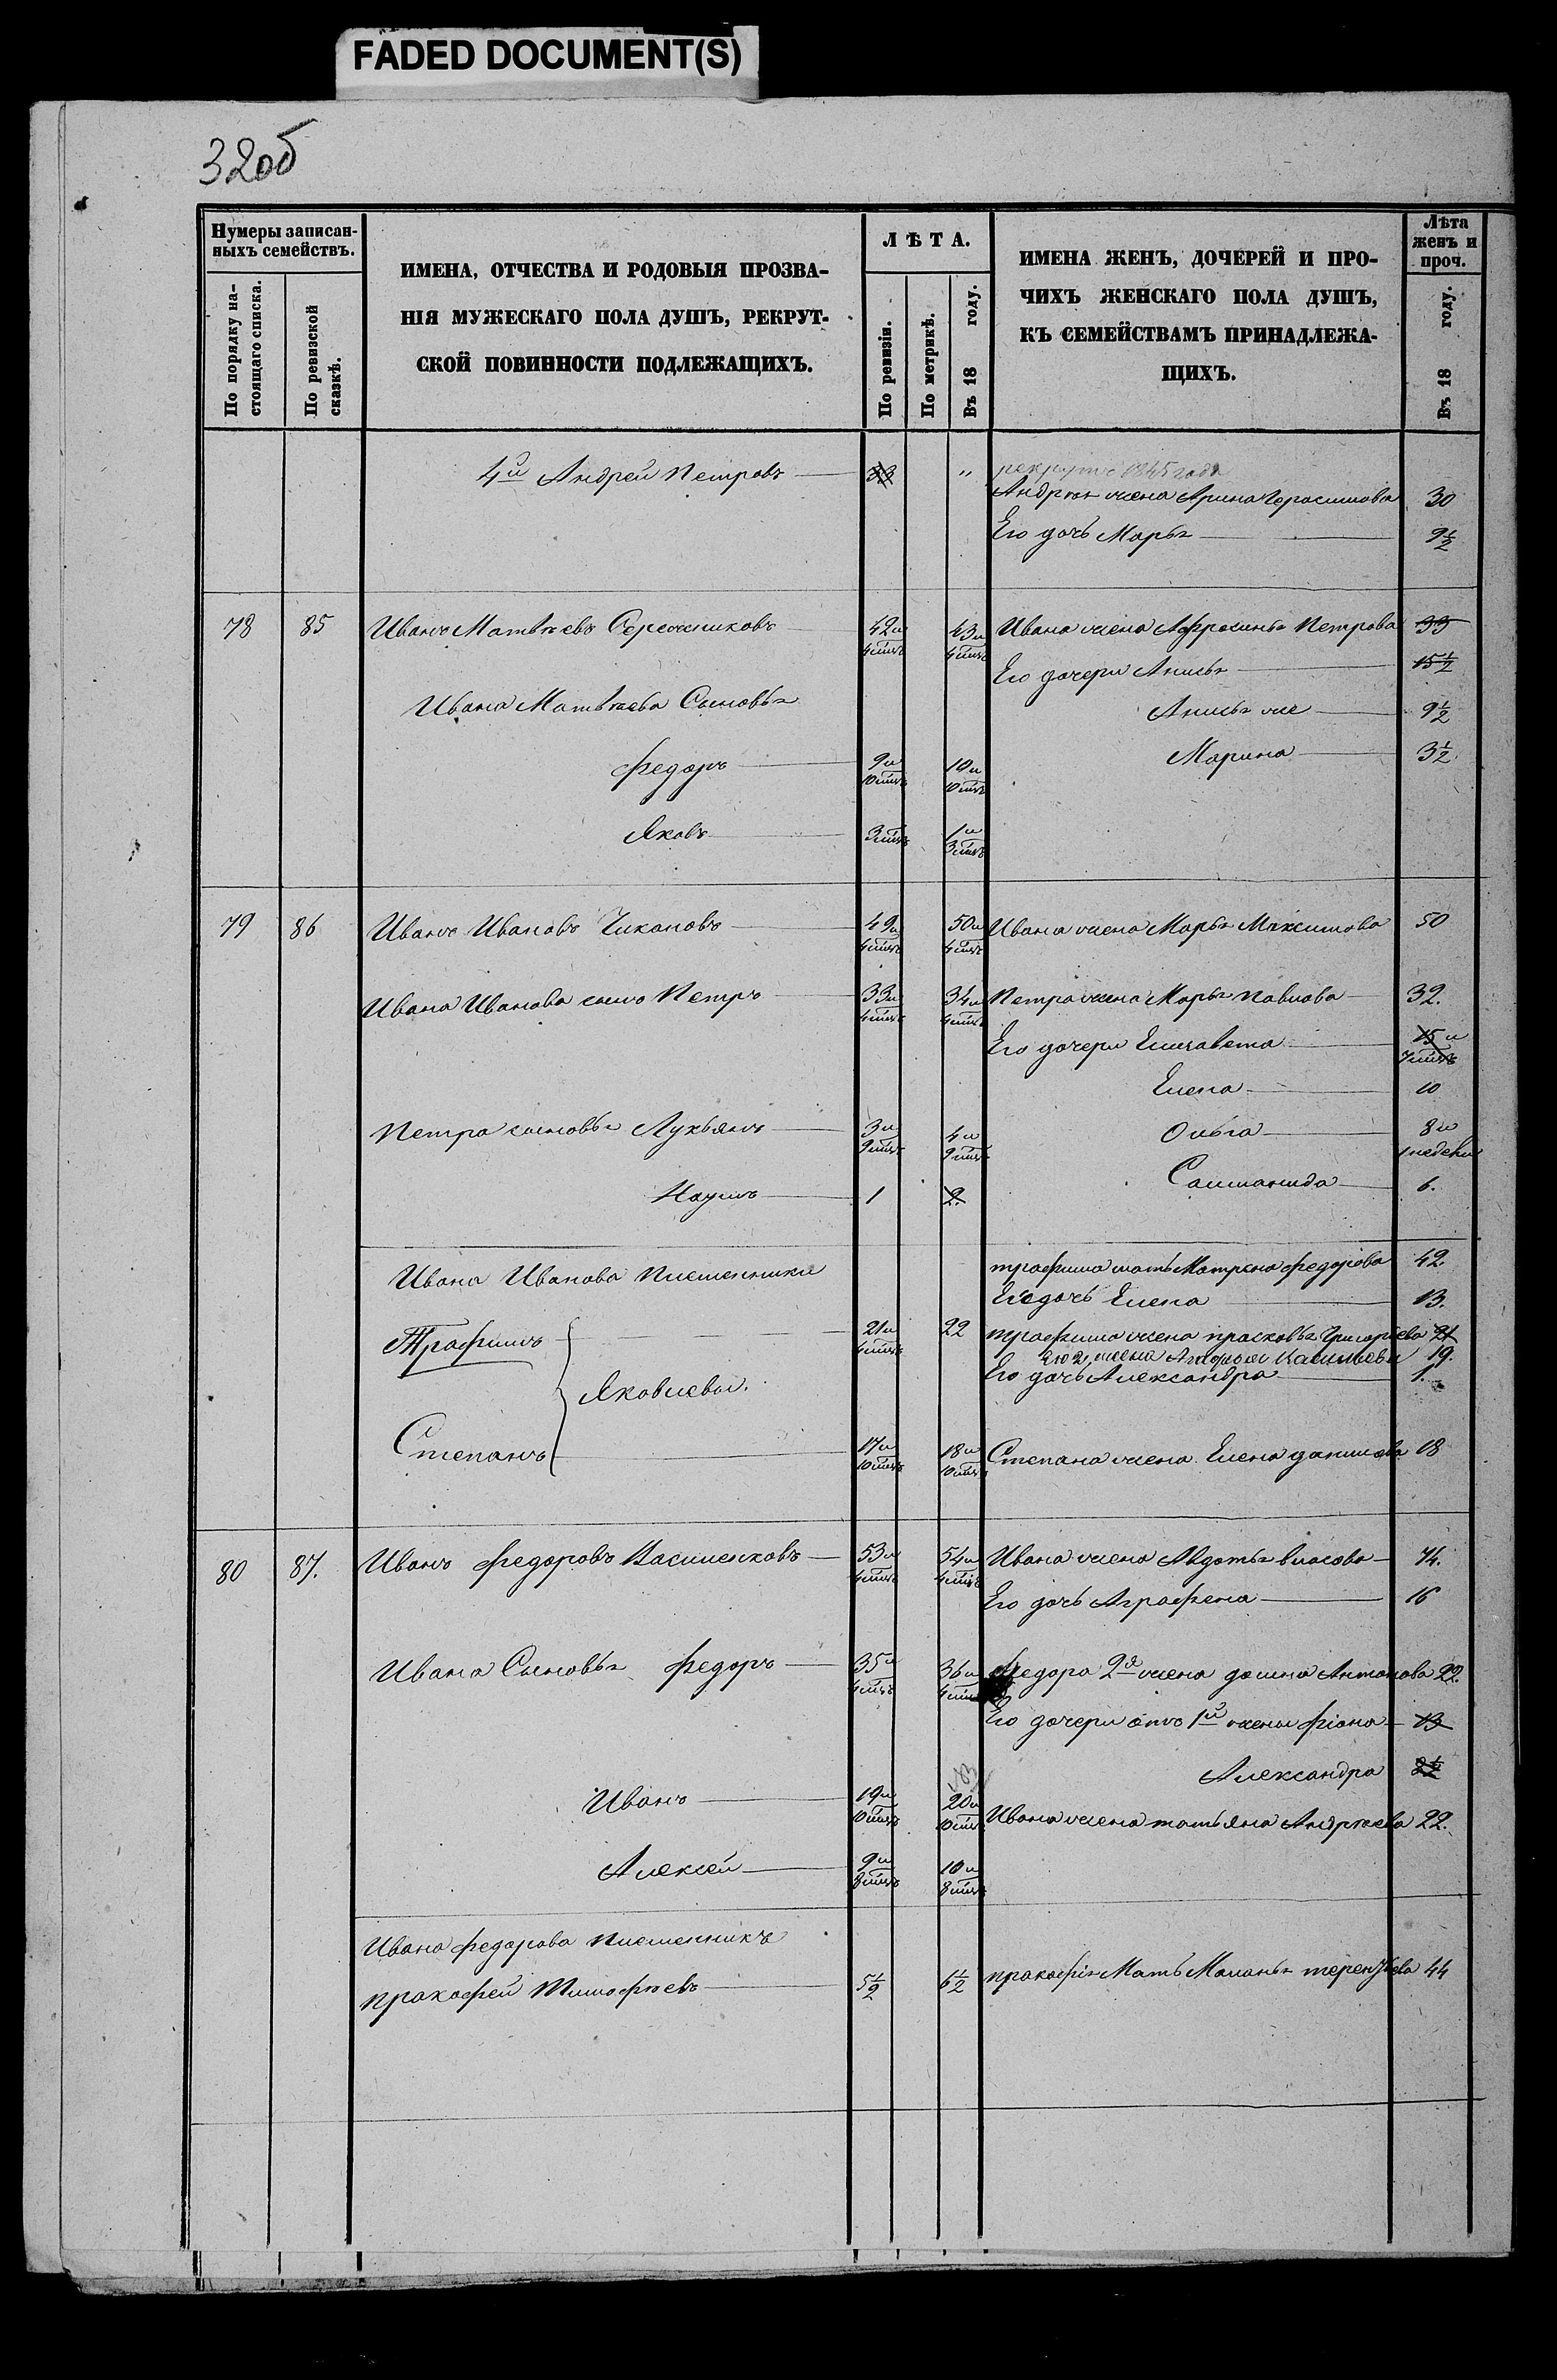 FADED DOCUMENT(S)
32об
Нумеры записан-
ныхъ семействъ.
По порядку на-
стоящаго списка.
По ревизской
сказкѣ.
ИМЕНА, ОТЧЕСТВА И РОДОВЫЯ ПРОЗВА-
НІЯ МУЖЕСКАГО ПОЛА ДУШЪ, РЕКРУТ-
СКОЙ ПОВИННОСТИ ПОДЛЕЖАЩИХЪ.
ЛѢТА.
По ревизіи.
По метрикѣ.
Въ 18 году.
ИМЕНА ЖЕНЪ, ДОЧЕРЕЙ И ПРО-
ЧИХЪ ЖЕНСКАГО ПОЛА ДУШЪ,
КЪ СЕМЕЙСТВАМЪ ПРИНАДЛЕЖА-
ЩИХЪ.
Лѣта
женъ и
проч.
Въ 18 году.
4й Андрей Петровъ 33 " рекрутъ 1845 года
Андрѣя жена Арина Герасимова 30
Его дочь Марья 9½
78 85 Иванъ Матвѣевъ Сережниковъ 42 и 4 мцъ 43 и 4 мцъ Ивана жена Афросинья Петрова 33
Его дочери Анисья 15½
Ивана Матвѣева Сыновья Анисья же 9½
Федоръ 9 и 10 мцъ 10 и 10 мцъ Марина 3½
Яковъ 3 мцъ 1 и 3 мцъ
79 86 Иванъ Ивановъ Чикановъ 49 и 4 мцъ 50 и 4 мцъ Ивана жена Марья Максимова 50
Ивана Иванова сынъ Петръ 33 и 4 мцъ 34 и 4 мцъ Петра жена Марья Павлова 32.
Его дочери Елизавета 15 и 7 мцъ
Елена 10
Петра сыновья Лукьянъ 3 и 9 мцъ 4 и 9 мцъ Ольга 8 и 1 недели
Наумъ 1 2. Саломанида 6.
Ивана Иванова племенники трафима мать Матрена федорова 42.
Её дочь Елена 13.
Трафимъ 21 и 4 мцъ 22 трафима жена прасковья Григорьева 21
Его 2 жена Васильева 19.
Яковлевы. Его дочь Александра 1.
Степанъ 17 и 10 мцъ 18 и 10 мцъ Степана жена Елена данилова 18
80 87. Иванъ федоровъ Василенковъ 53 и 4 мцъ 54 и 4 мцъ Ивана жена Авдотья власова 74.
Его дочь Аграфена 16
Ивана Сыновья федоръ 35 и 4 мцъ 36 и 4 мцъ федора 2я жена домна Антонова 22.
Его дочери отъ 1й жены фіона 13
Александра 2½
Иванъ 19 и 10 мцъ 20 и 10 мцъ Ивана жена татьяна Андрѣева 22.
Алексей 9 и 8 мцъ 10 и 8 мцъ
Ивана федорова племенникъ
прокофей Тимофѣевъ 5½ 6½ прокофія Мать Маланья терентьева 44